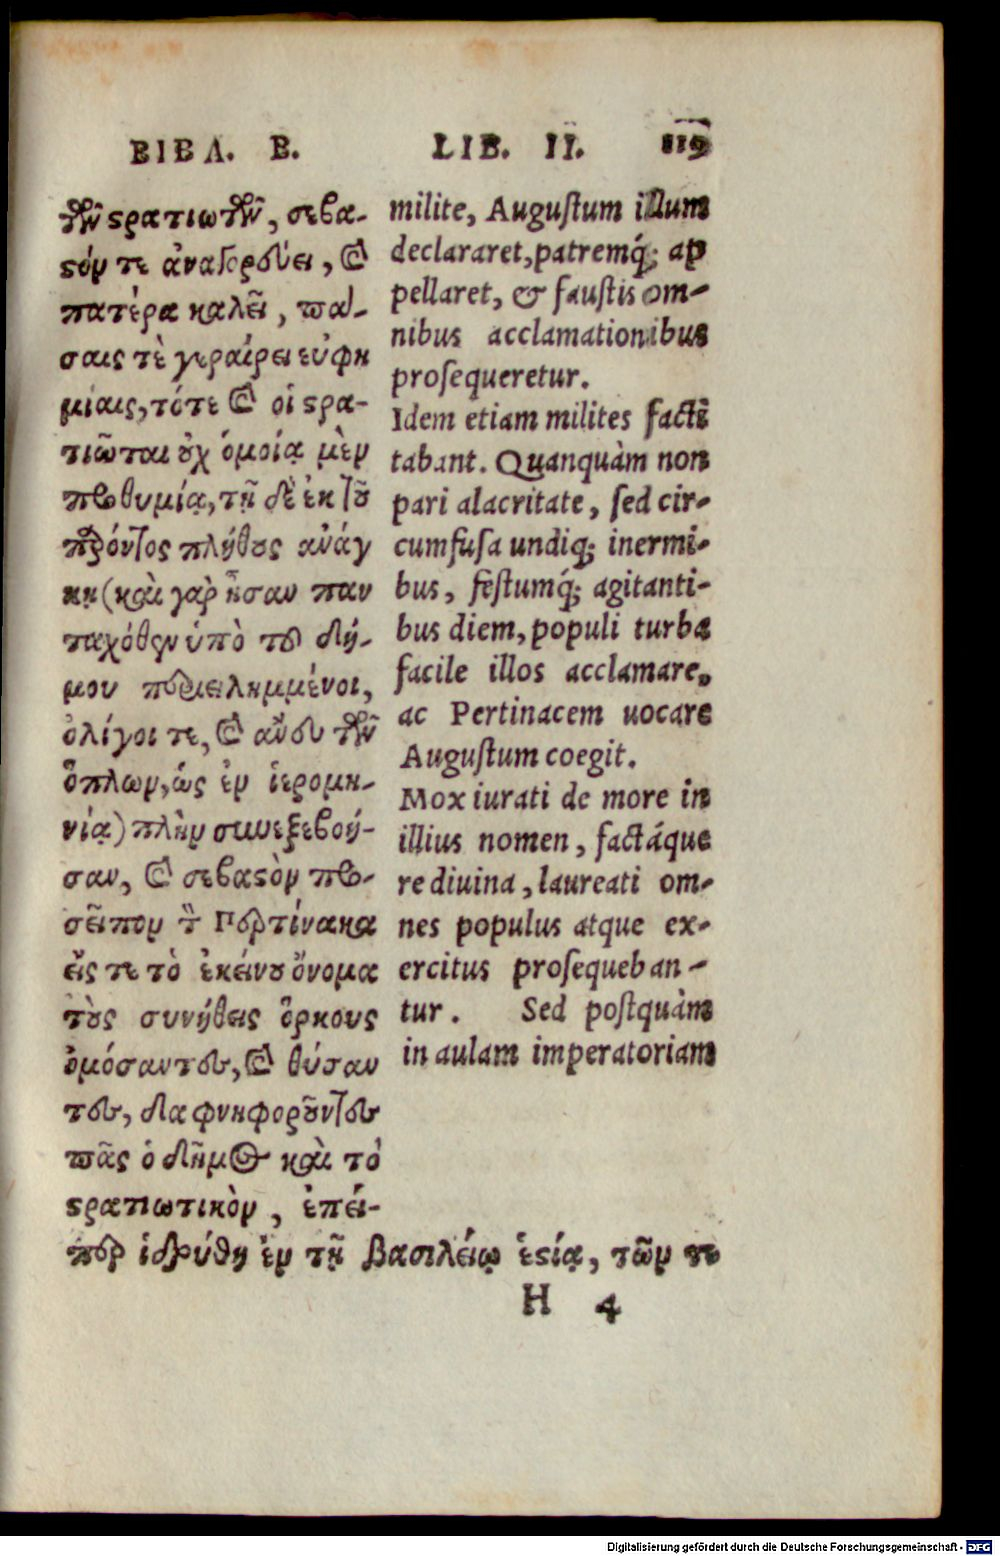 ΒΙΒΛ. Β.
τῶν στρατιωτῶν, σεβα-
στόν τε ἀναγορεύει, καὶ
πατέρα καλεῖ, πά-
σαις τὲ γεραίρει εὐφη
μίαις, τότε καὶ οἱ στρα-
τιῶται οὐχ ὁμοίᾳ μὲν
προθυμίᾳ, τῇ δὲ ἐκ τοῦ
παρόντος πλήθους ἀνάγ
κῃ (καὶ γὰρ ἦσαν παν
ταχόθεν ὑπὸ τοῦ δή-
μου περιειλημμένοι,
ὀλίγοι τε, καὶ ἄνευ τῶν
ὅπλων, ὡς ἐν ἱερομη-
νίᾳ) πλὴν συνεξεβοή-
σαν, καὶ σεβαστὸν προ-
σεῖπον τὸν Περτίνακα
εἴς τε τὸ ἐκείνου ὄνομα
τοὺς συνήθεις ὅρκους
ὀμόσαντες, καὶ θύσαν
τες, δαφνηφοροῦντες
πᾶς ὁ δῆμος καὶ τὸ
στρατιωτικὸν, ἐπεί-
περ ἱδρύθη ἐν τῇ βασιλείῳ ἑστίᾳ, τῶν τε
LIB. II. 119
milite, Augustum illum
declararet, patremq́; ap
pellaret, & faustis om-
nibus acclamationibus
prosequeretur.
Idem etiam milites factĩ
tabant. Quanquàm non
pari alacritate, sed cir-
cumfusa undiq; inermi-
bus, festumq́; agitanti-
bus diem, populi turba
facile illos acclamare,
ac Pertinacem uocare
Augustum coegit.
Mox iurati de more in
illius nomen, factáque
re diuina, laureati om-
nes populus atque ex-
ercitus prosequeban-
tur. Sed postquàm
in aulam imperatoriam
H 4
Digitalisierung gefördert durch die Deutsche Forschungsgemeinschaft - DFG